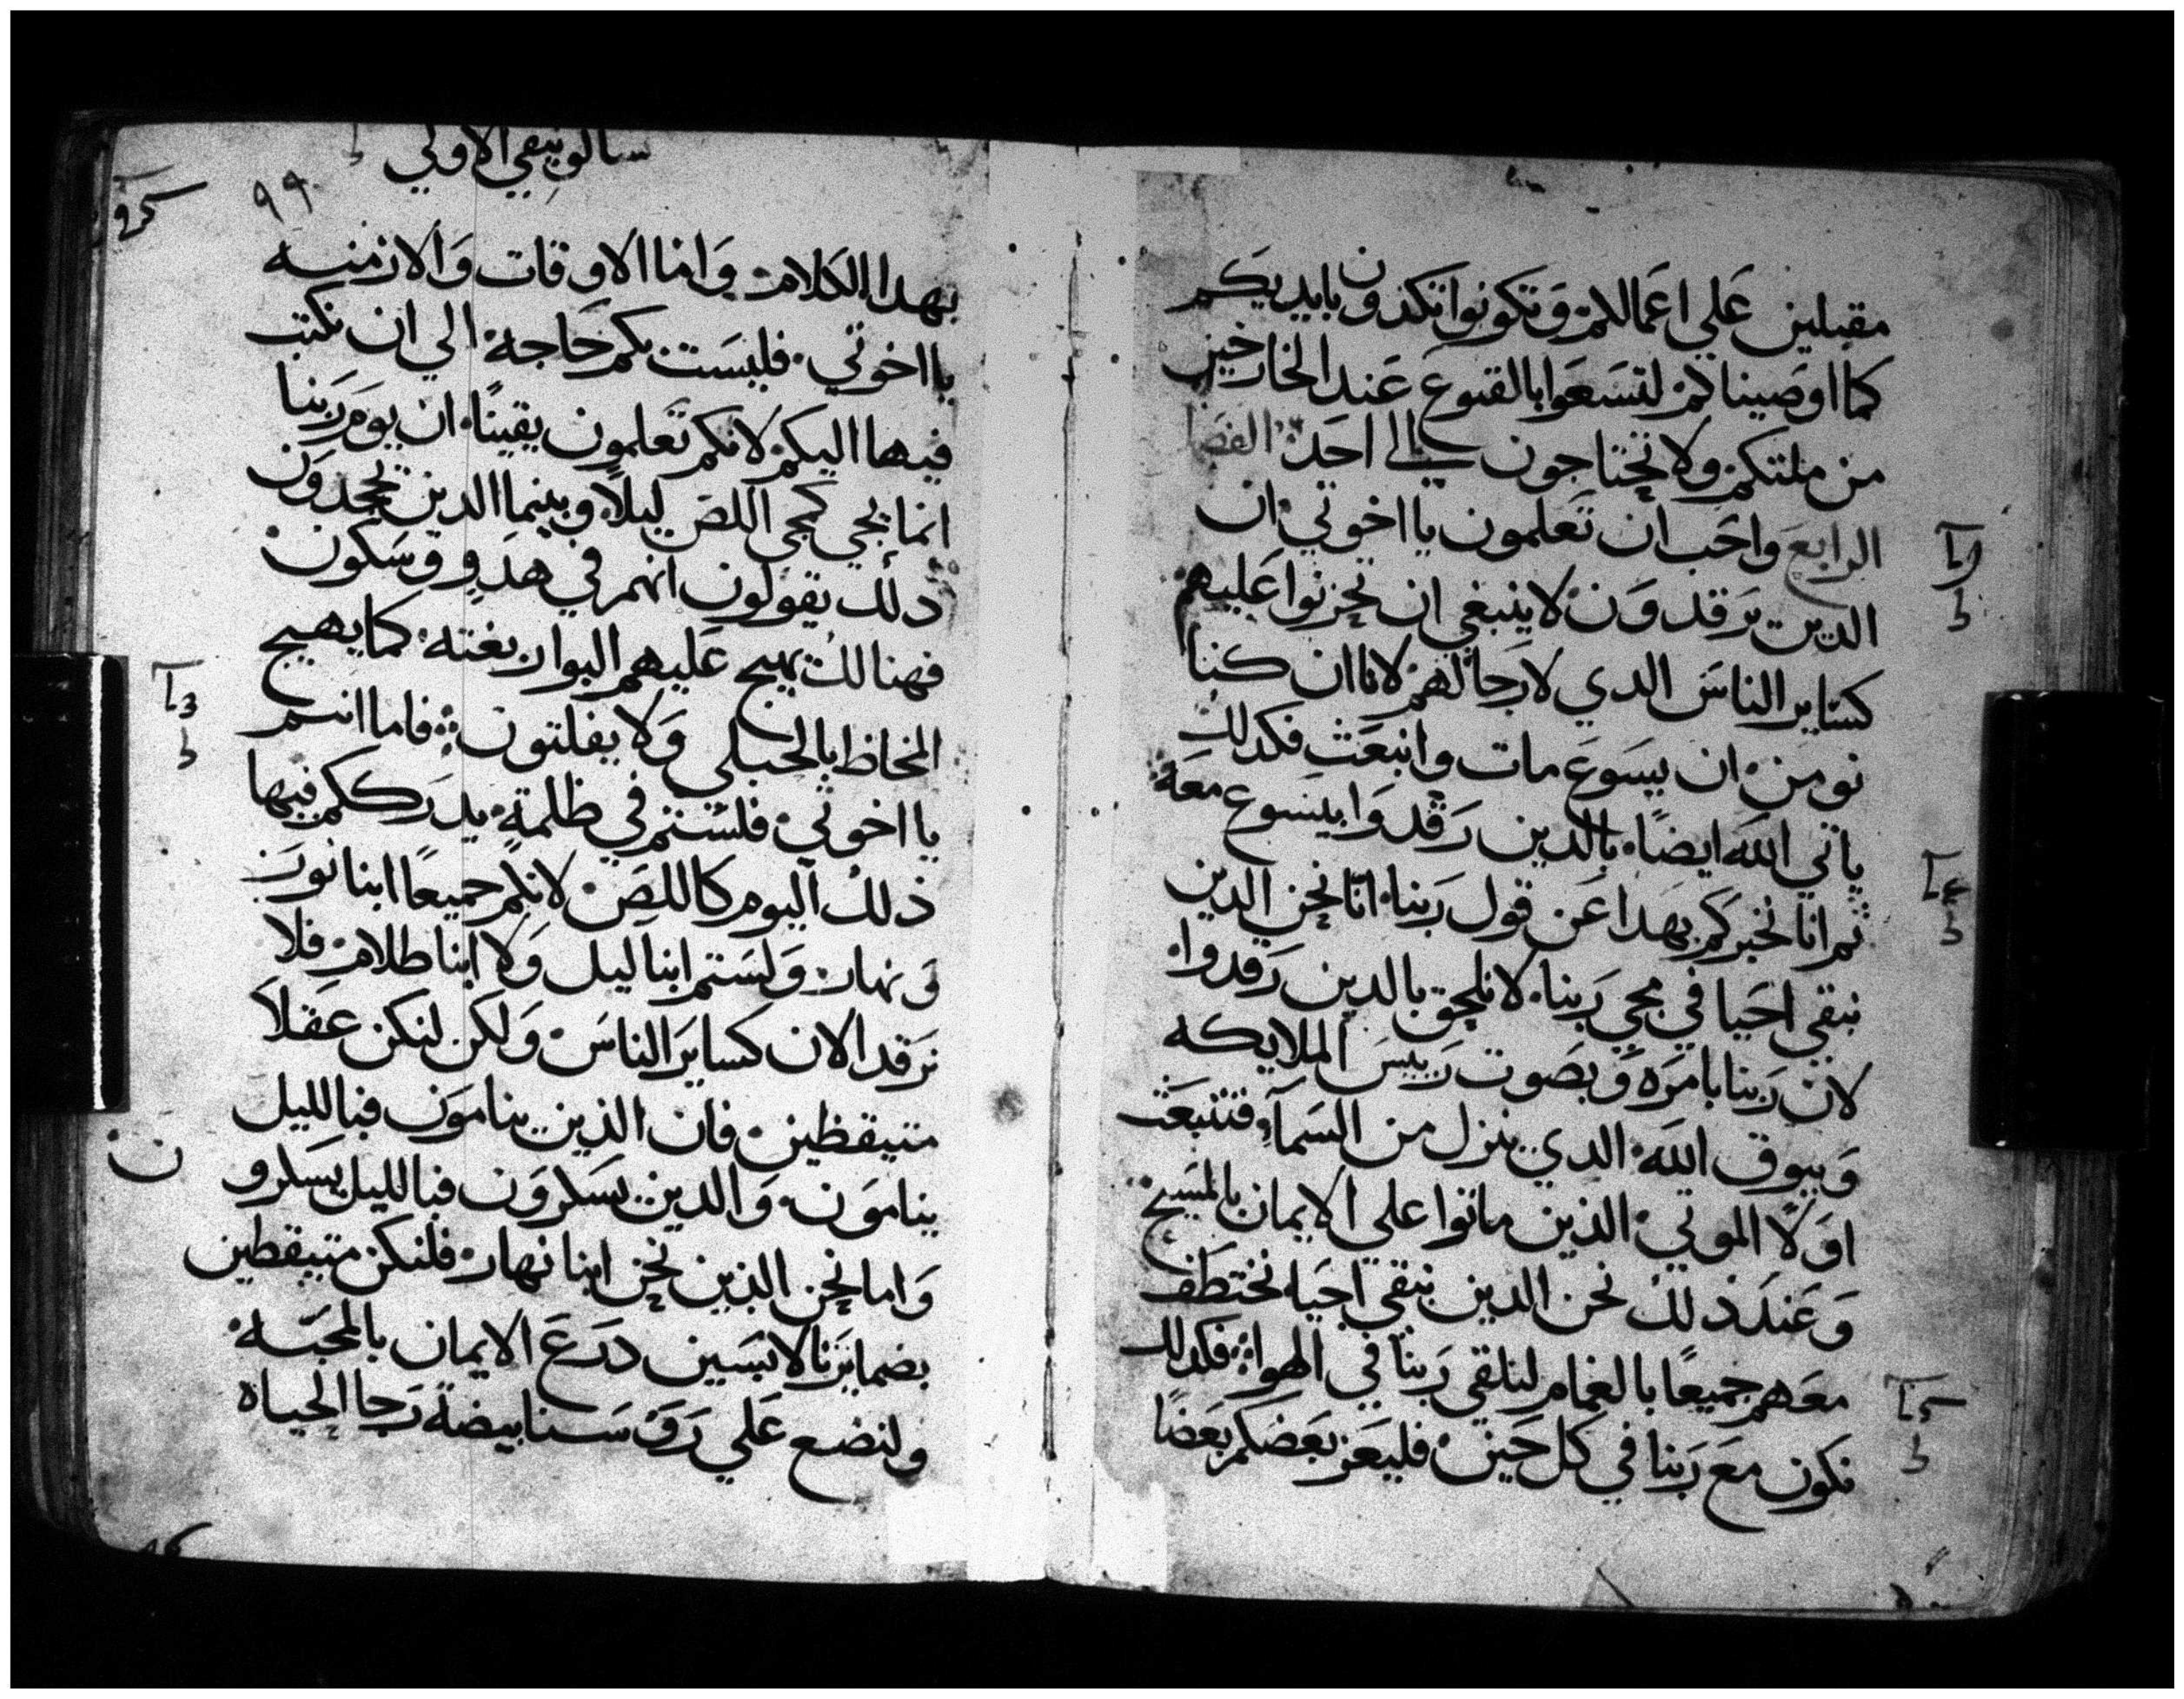 مقبلين علي اعمالكم وتكونوا تكدون بايديكم
كما اوصيناكم لتسعوا بالقنوع عند الخارجين
من ملتكم ولا تحتاجون الى احد الفصل
الرابع واحب ان تعلمون يا اخوتي ان
الدين يرقدون لا ينبغي ان تحزنوا عليهم
كساير الناس الدي لا رجا لهم لانا ان كنا
نومن ان يسوع مات وانبعث فكدلك
ياتي الله ايضا بالدين رقدوا بيسوع معه
ثم انا نخبركم بهدا عن قول ربنا انا نحن الدين
نبقي احيا في مجي ربنا لا نلحق بالدين رقدوا
لان ربنا بامره وبصوت رييس الملايكه
وببوق الله الدي ينزل من السمآ فتنبعث
اولا الموتي الذين ماتوا علي الايمان بالمسيح
وعند ذلك نحن الدين نبقي احيا نختطف
معهم جميعا بالغمام لنلقي ربنا في الهوا فكدلك
نكون مع ربنا في كل حين فليعز بعضكم بعضا
سالونيقي الاولي
٩٩
بهدا الكلام واما الاوقات والازمنه
يا اخوتي فليست بكم حاجة الي ان نكتب
فيها اليكم لانكم تعلمون يقينا ان يوم ربنا
انما يجي كمجي اللص ليلا وبينما الدين يجحدون
دلك يقولون انهم في هدو وسكون
فهنالك يهيج عليهم البوار بغته كما يهيج
المخاظ بالحبلي ولا يفلتون فاما انتم
يا اخوتي فلستم في ظلمة يدرككم فيها
ذلك اليوم كاللص لانكم جميعا ابنا نور
ونهار ولستم ابنا ليل ولا ابنا ظلام فلا
نرقد الان كساير الناس ولكن لنكن عقلا
متيقظين فان الذين ينامون فبالليل
ينامون والدين يسكرون فبالليل يسكرو
ن
واما نحن الذين نحن ابنا نهار فلنكن متيقظين
بضمايرنا لابسين درع الايمان بالمحبه
ولنضع علي روسنا بيضة رجا الحياه